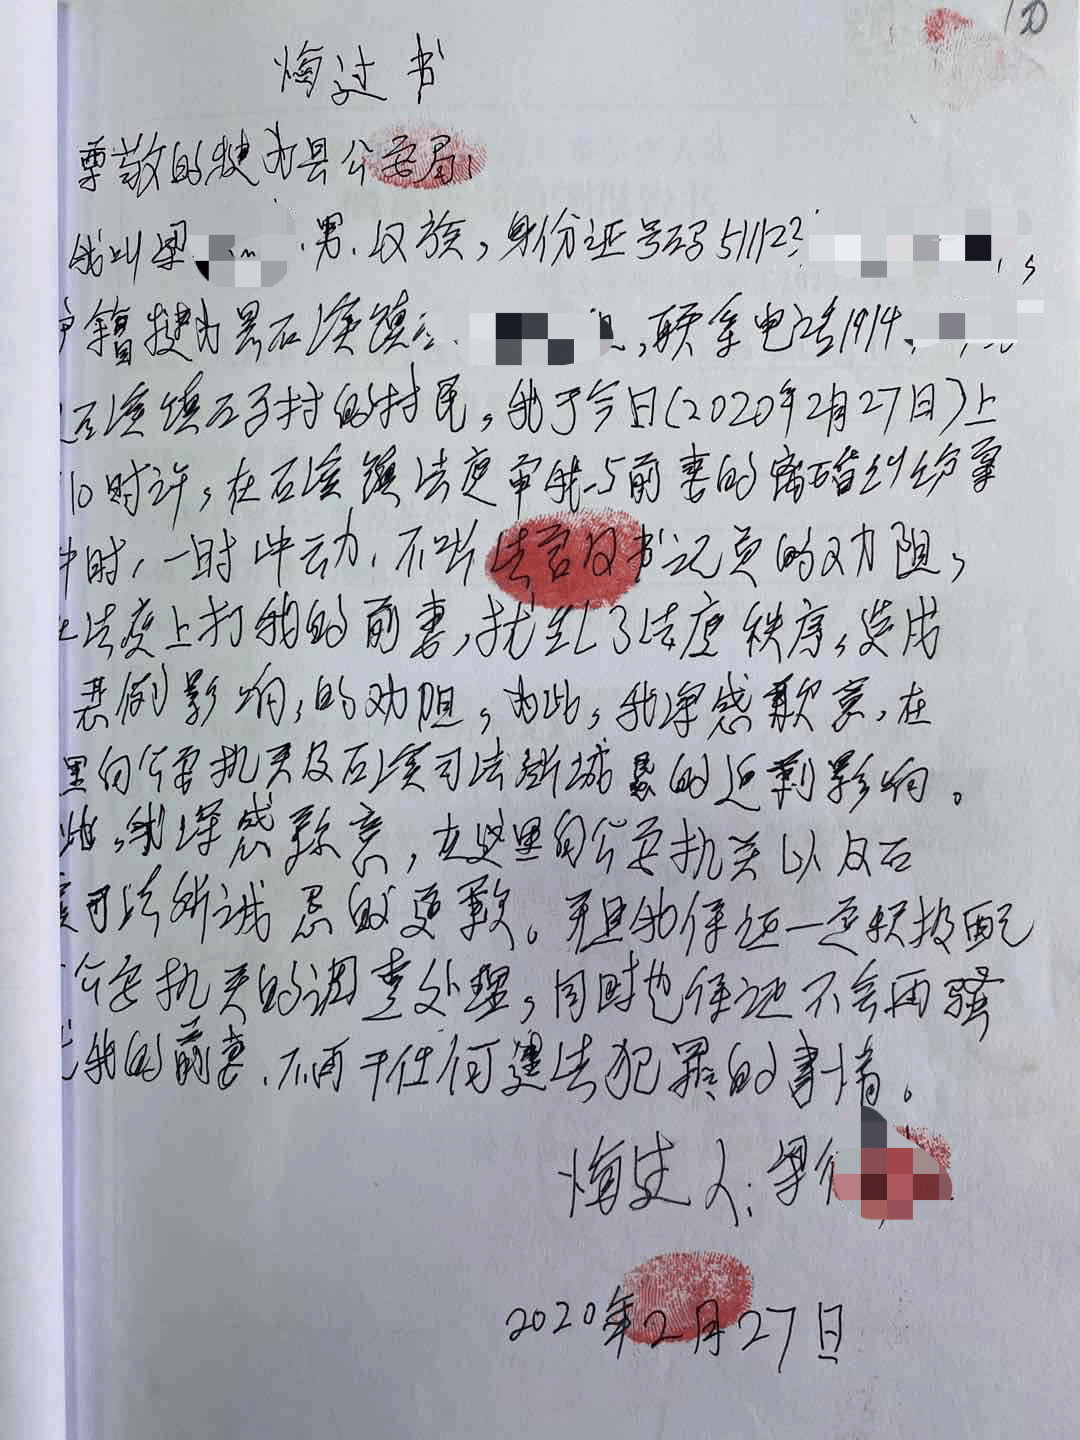 悔过书
尊敬的犍为县公安局:
我叫梁 男.汉族,身份证号码511123
籍犍为县石溪镇 ,联系电话1914
石溪镇石子村的村民,我于今日(2020年2月27日)上
10时许,在石溪镇法庭审我与前妻的离婚纠纷案
件时,一时冲动.不听法官及书记员的劝阻,
法庭上打我的前妻,扰乱了法庭秩序,造成
恶例影响,的劝阻,为此,我深感歉意,在
里向公安机关及石溪司法所诚恳的 影响。
此,我深感歉意,在这里向公安机关以及石
溪司法所诚恳的道歉。并且我保证一定积极配
公安机关的调查处理,同时也保证不会再骚
扰我的前妻.不再干任何违法犯罪的事情。
悔过人:梁
2020年2月27日